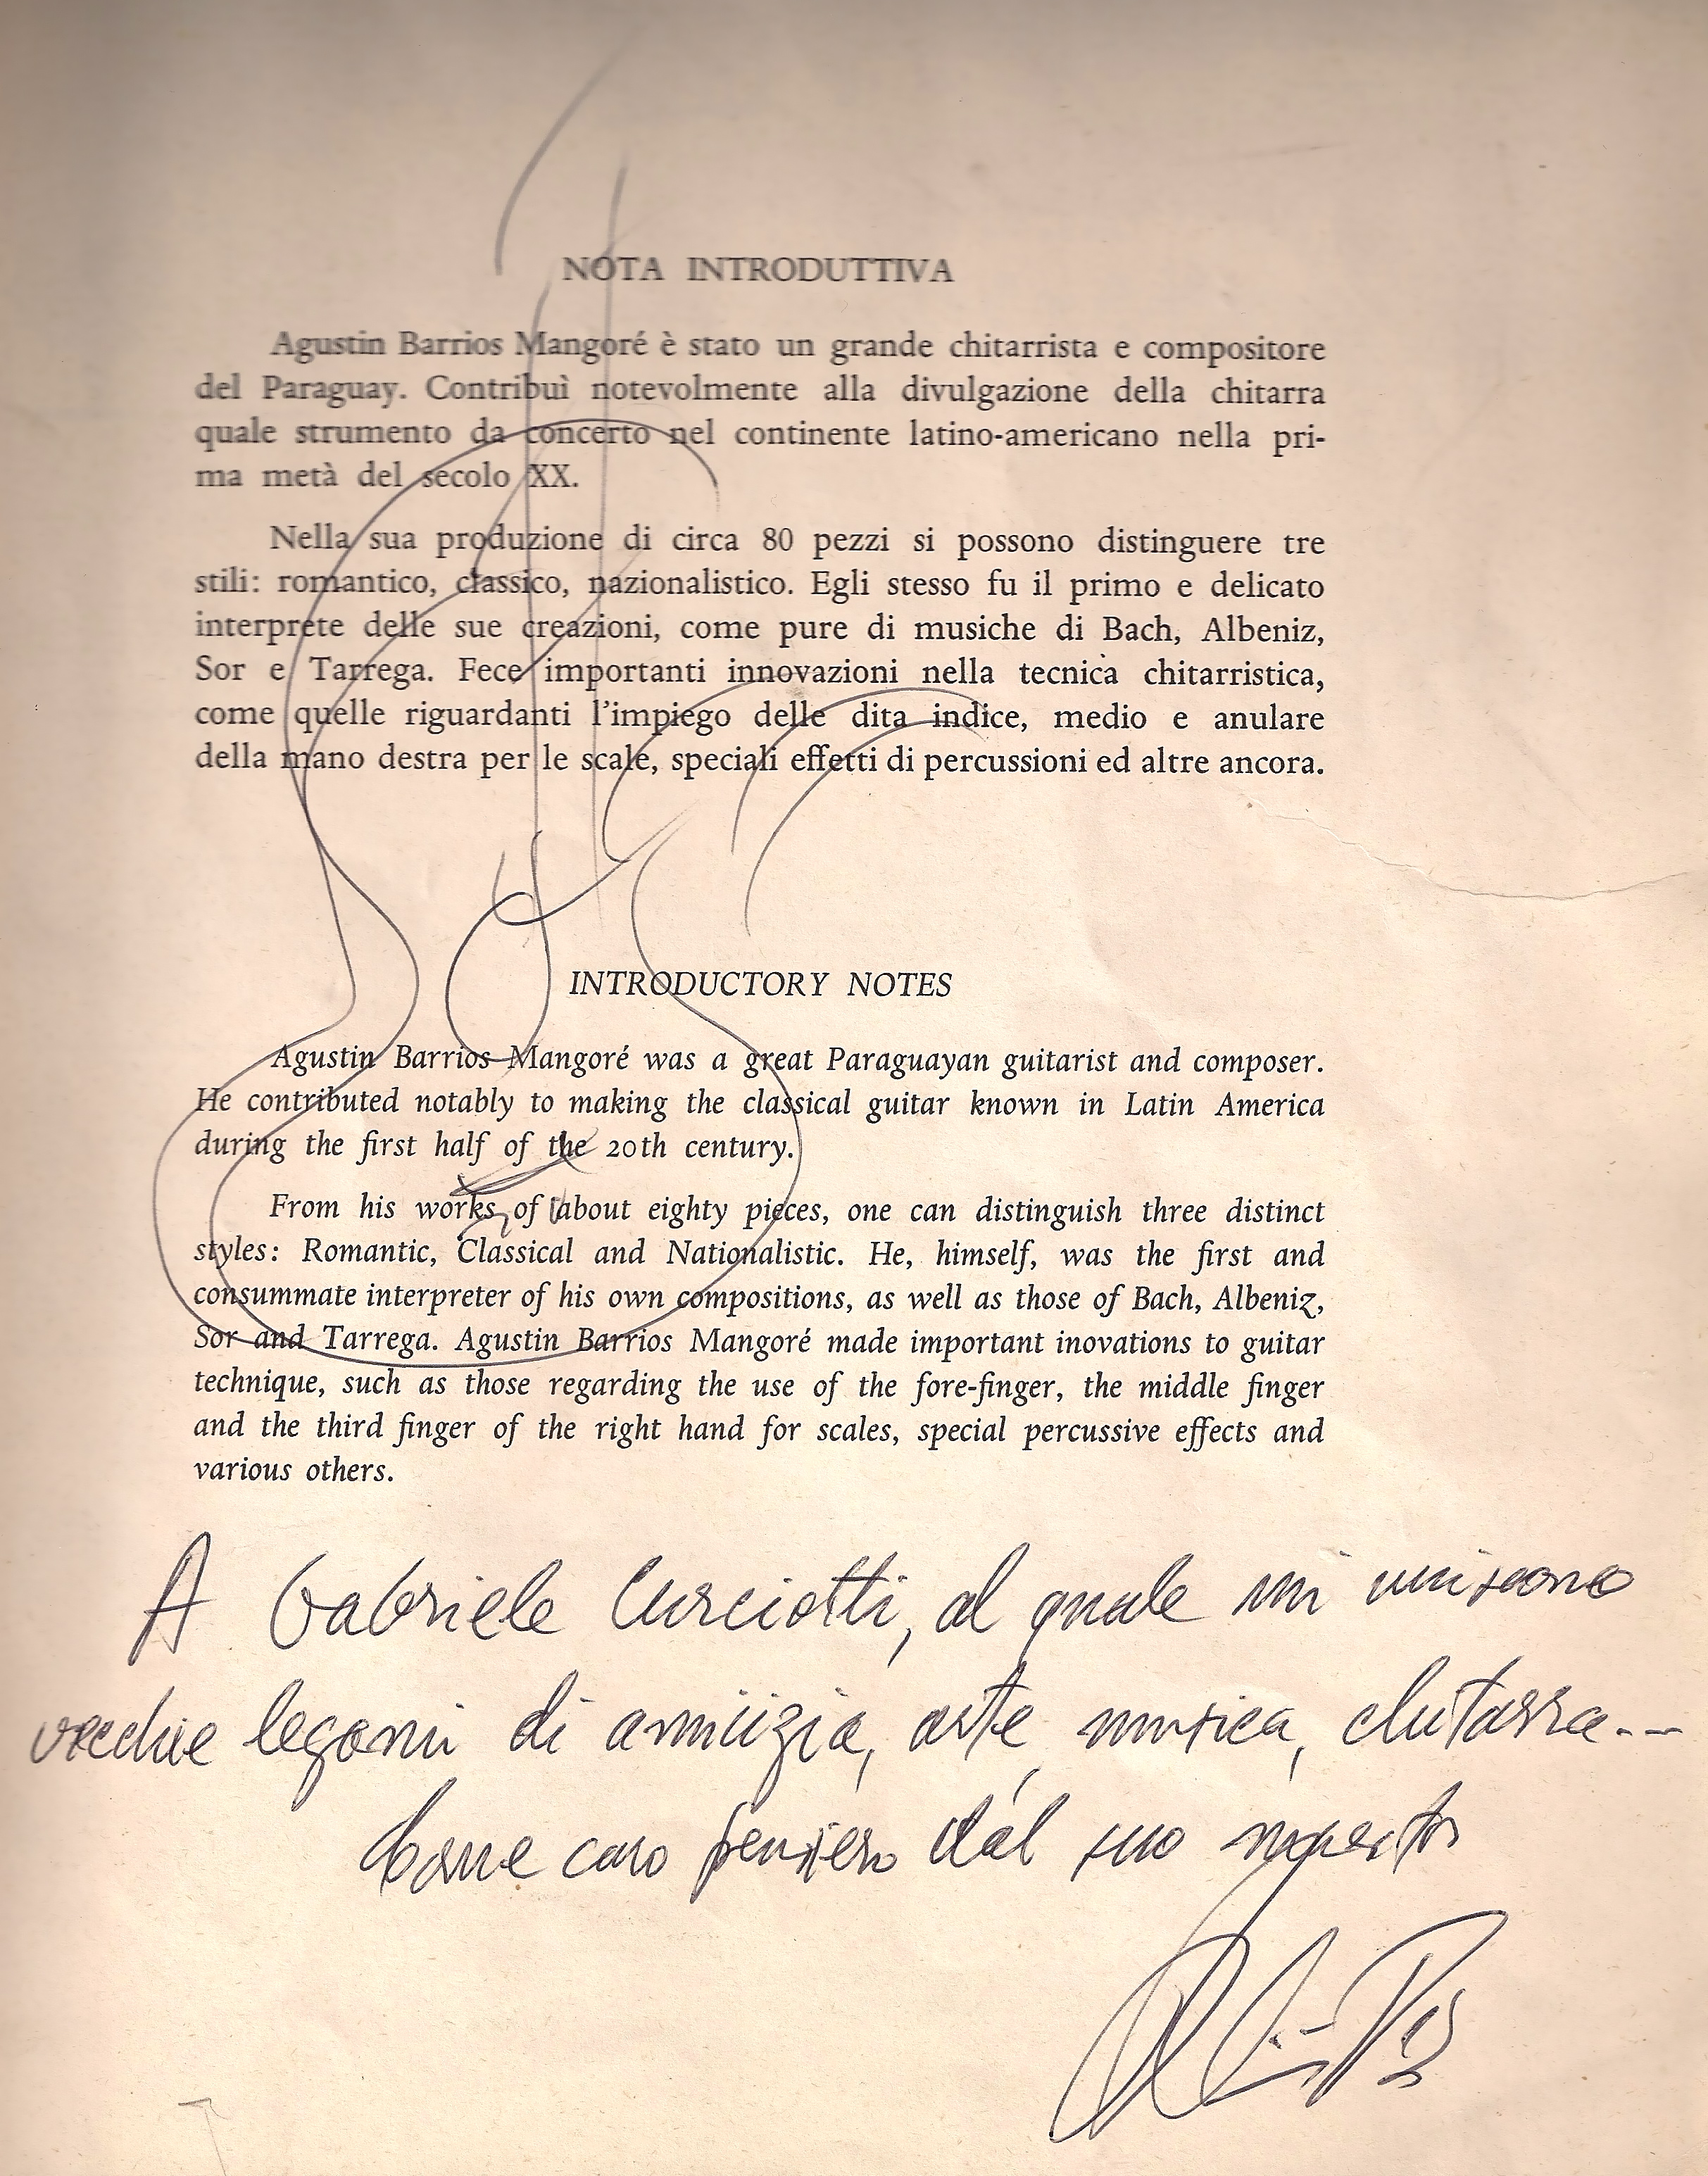 NOTA INTRODUTTIVA
Agustin Barrios Mangoré è stato un grande chitarrista e compositore
del Paraguay. Contribuì notevolmente alla divulgazione della chitarra
quale strumento da concerto nel continente latino-americano nella pri-
ma metà del secolo XX.
Nella sua produzione di circa 80 pezzi si possono distinguere tre
stili: romantico, classico, nazionalistico. Egli stesso fu il primo e delicato
interprete delle sue creazioni, come pure di musiche di Bach, Albeniz,
Sor e Tarrega. Fece importanti innovazioni nella tecnica chitarristica,
come quelle riguardanti l'impiego delle dita indice, medio e anulare
della mano destra per le scale, speciali effetti di percussioni ed altre ancora.
INTRODUCTORY NOTES
Agustin Barrios Mangoré was a great Paraguayan guitarist and composer.
He contributed notably to making the classical guitar known in Latin America
during the first half of the 20th century.
From his works of about eighty pieces, one can distinguish three distinct
styles: Romantic, Classical and Nationalistic. He, himself, was the first and
consummate interpreter of his own compositions, as well as those of Bach, Albeniz,
Sor and Tarrega. Agustin Barrios Mangoré made important inovations to guitar
technique, such as those regarding the use of the fore-finger, the middle finger
and the third finger of the right hand for scales, special percussive effects and
various others.
A Gabriele Curciotti, al quale mi uniscono
vecchie legami di amicizia, arte musica, chitarra...
Come caro pensiero dal suo maestro